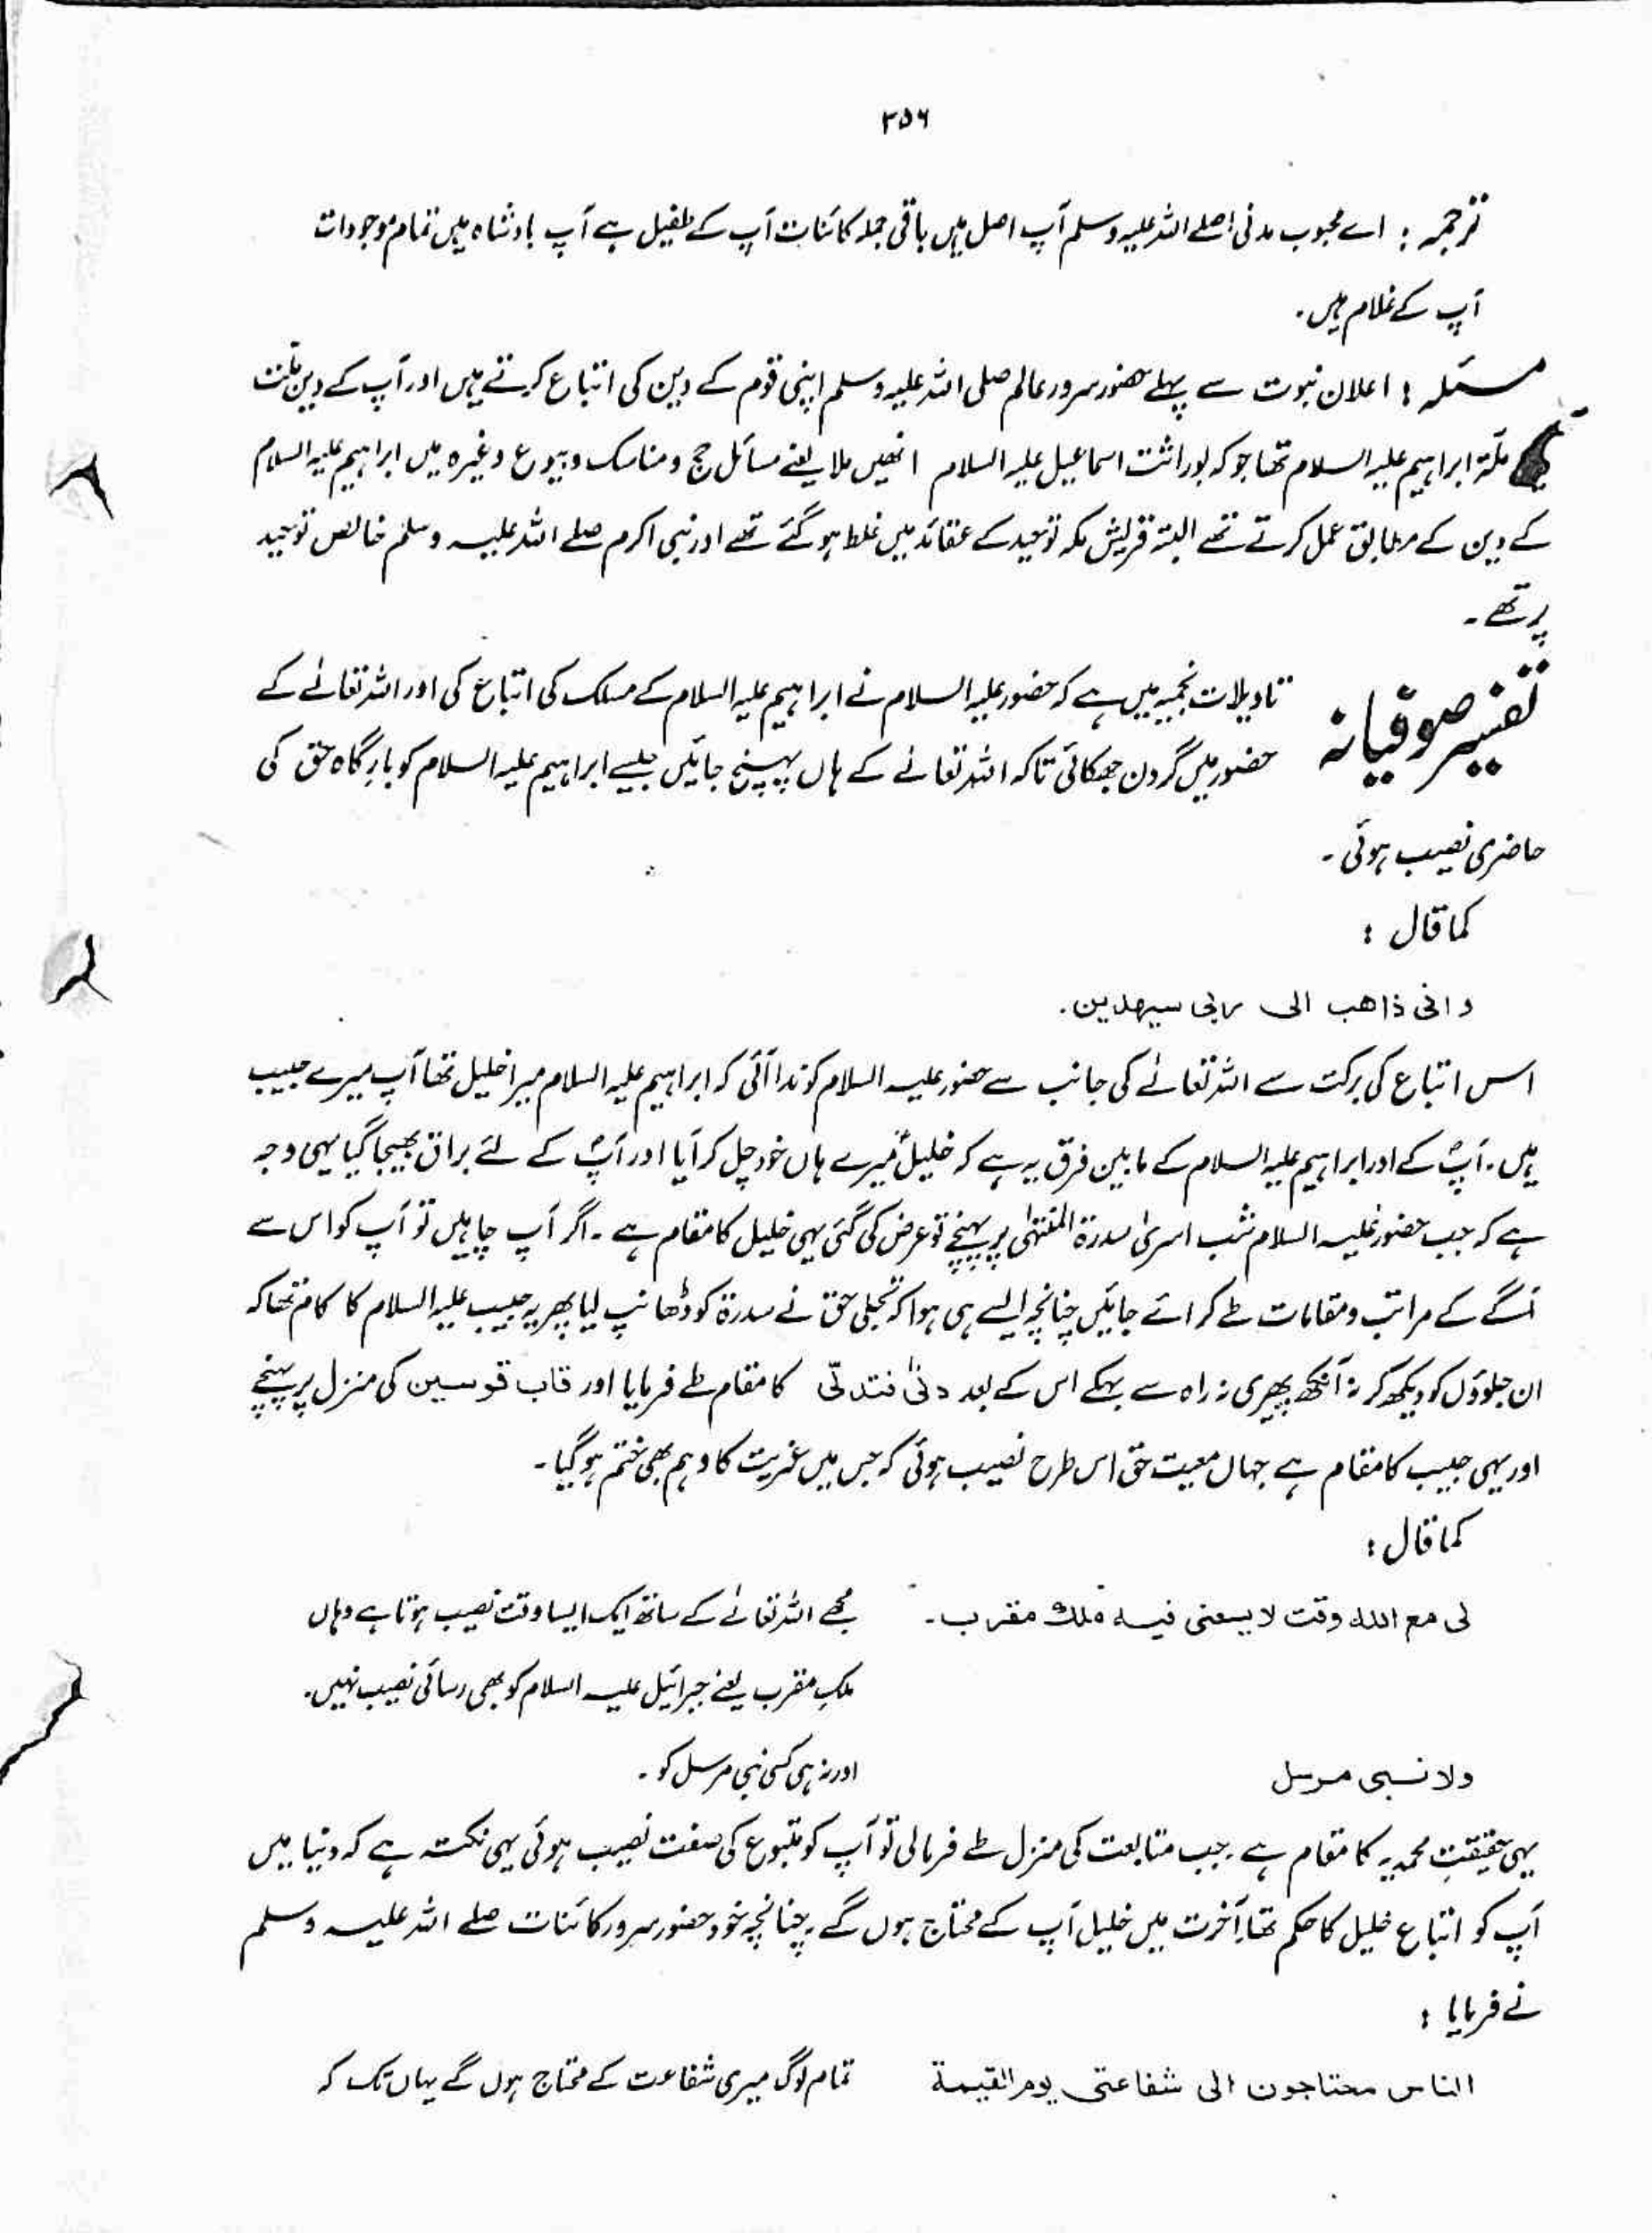 ۲۵۶
ترجمہ : اے محبوب مدنی صلے اللہ علیہ وسلم آپ اصل ہیں باقی جملہ کائنات آپ کے طفیل ہے آپ بادشاہ ہیں تمام موجودات
آپ کے غلام ہیں۔
مسئلہ : اعلان نبوت سے پہلے حضور سرور عالم صلی اللہ علیہ وسلم اپنی قوم کے دین کی اتباع کرتے ہیں اور آپ کے دین ملت
ملۃ ابراہیم علیہ السلام تھا جو کہ بوراثت اسماعیل علیہ السلام انھیں ملا یعنے مسائل حج و مناسک و بیوع وغیرہ میں ابراہیم علیہ السلام
کے دین کے مطابق عمل کرتے تھے البتہ قریش مکہ توحید کے عقائد میں غلط ہو گئے تھے اور نبی اکرم صلے اللہ علیہ وسلم خالص توحید
پر تھے۔
تفسیر صوفیانہ تاویلات نجمیہ میں ہے کہ حضور علیہ السلام نے ابراہیم علیہ السلام کے مسلک کی اتباع کی اور اللہ تعالےٰ کے
حضور میں گردن جھکائی تاکہ اللہ تعالےٰ کے ہاں پہنچ جائیں جیسے ابراہیم علیہ السلام کو بارگاہ حق کی
حاضری نصیب ہوئی۔
کما قال :
وانی ذاھب الی ربی سیھدین۔
اس اتباع کی برکت سے اللہ تعالےٰ کی جانب سے حضور علیہ السلام کو ندا آئی کہ ابراہیم علیہ السلام میرا خلیل تھا آپ میرے حبیب
ہیں۔ آپؐ کے اور ابراہیم علیہ السلام کے مابین فرق یہ ہے کہ خلیلؑ میرے ہاں خود چل کر آیا اور آپؐ کے لئے براق بھیجا گیا یہی وجہ
ہے کہ جب حضور علیہ السلام شب اسریٰ سدرۃ المنتہٰی پر پہنچے تو عرض کی گئی یہی خلیل کا مقام ہے۔ اگر آپ چاہیں تو آپ کو اس سے
آگے کے مراتب و مقامات طے کرائے جائیں چنانچہ ایسے ہی ہوا کہ تجلی حق نے سدرۃ کو ڈھانپ لیا پھر یہ حبیب علیہ السلام کا کام تھا کہ
ان جلوؤں کو دیکھ کر نہ آنکھ پھیری نہ راہ سے بہکے اس کے بعد دنیٰ فتدلّی کا مقام طے فرمایا اور قاب قوسین کی منزل پر پہنچے
اور یہی حبیب کا مقام ہے جہاں معیت حق اس طرح نصیب ہوئی کہ جس میں غیریت کا وہم بھی ختم ہو گیا۔
کما قال :
لی مع اللہ وقت لا یسعنی فیہ ملک مقرب۔ مجھے اللہ تعالےٰ کے ساتھ ایک ایسا وقت نصیب ہوتا ہے وہاں
ملکِ مقرب یعنے جبرائیل علیہ السلام کو بھی رسائی نصیب نہیں۔
ولا نبی مرسل اور نہ ہی کسی نبی مرسل کو۔
یہی حقیقتِ محمدیہ کا مقام ہے۔ جب متابعت کی منزل طے فرمالی تو آپ کو متبوع کی صفت نصیب ہوئی یہی نکتہ ہے کہ دنیا میں
آپ کو اتباع خلیل کا حکم تھا۔ آخرت میں خلیل آپ کے محتاج ہوں گے۔ چنانچہ خود حضور سرور کائنات صلے اللہ علیہ وسلم
نے فرمایا :
الناس محتاجون الی شفاعتی یوم القیمۃ تمام لوگ میری شفاعت کے محتاج ہوں گے یہاں تک کہ